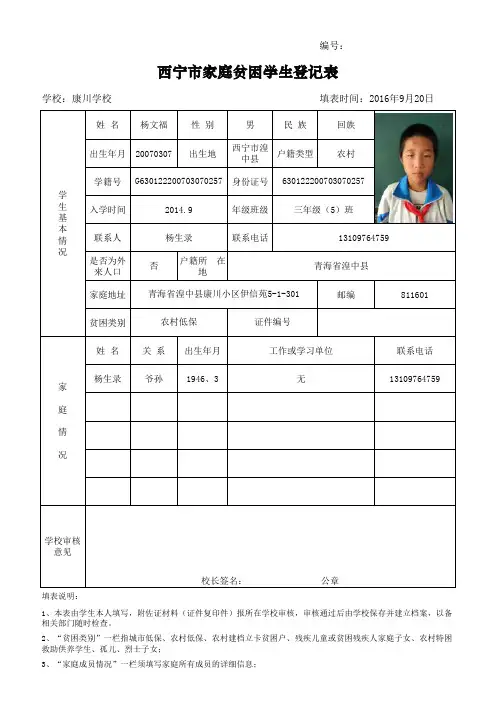 编号:
西宁市家庭贫困学生登记表
学校: 康川学校 填表时间: 2016年9月20日
学生基本情况
姓 名 杨文福 性 别 男 民 族 回族
出生年月 20070307 出生地 西宁市湟中县 户籍类型 农村
学籍号 G630122200703070257 身份证号 630122200703070257
入学时间 2014.9 年级班级 三年级（5）班
联系人 杨生录 联系电话 13109764759
是否为外来人口 否 户籍所 在地 青海省湟中县
家庭地址 青海省湟中县康川小区伊信苑5-1-301 邮编 811601
贫困类别 农村低保 证件编号
家庭情况
姓 名 关 系 出生年月 工作或学习单位 联系电话
杨生录 爷孙 1946、3 无 13109764759
学校审核意见
校长签名: 公章
填表说明:
1、本表由学生本人填写，附佐证材料（证件复印件）报所在学校审核，审核通过后由学校保存并建立档案，以备
相关部门随时检查。
2、“贫困类别”一栏指城市低保、农村低保、农村建档立卡贫困户、残疾儿童或贫困残疾人家庭子女、农村特困
救助供养学生、孤儿、烈士子女;
3、“家庭成员情况”一栏须填写家庭所有成员的详细信息;